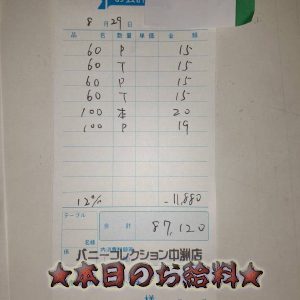 8月29日
品名 数量 単価 金額
60 P 15
60 T 15
60 P 15
60 T 15
100 本 20
100 P 19
12% -11,880
テーブル
名様
合計 87,120
バニーコレクション中洲店
★本日のお給料★
様